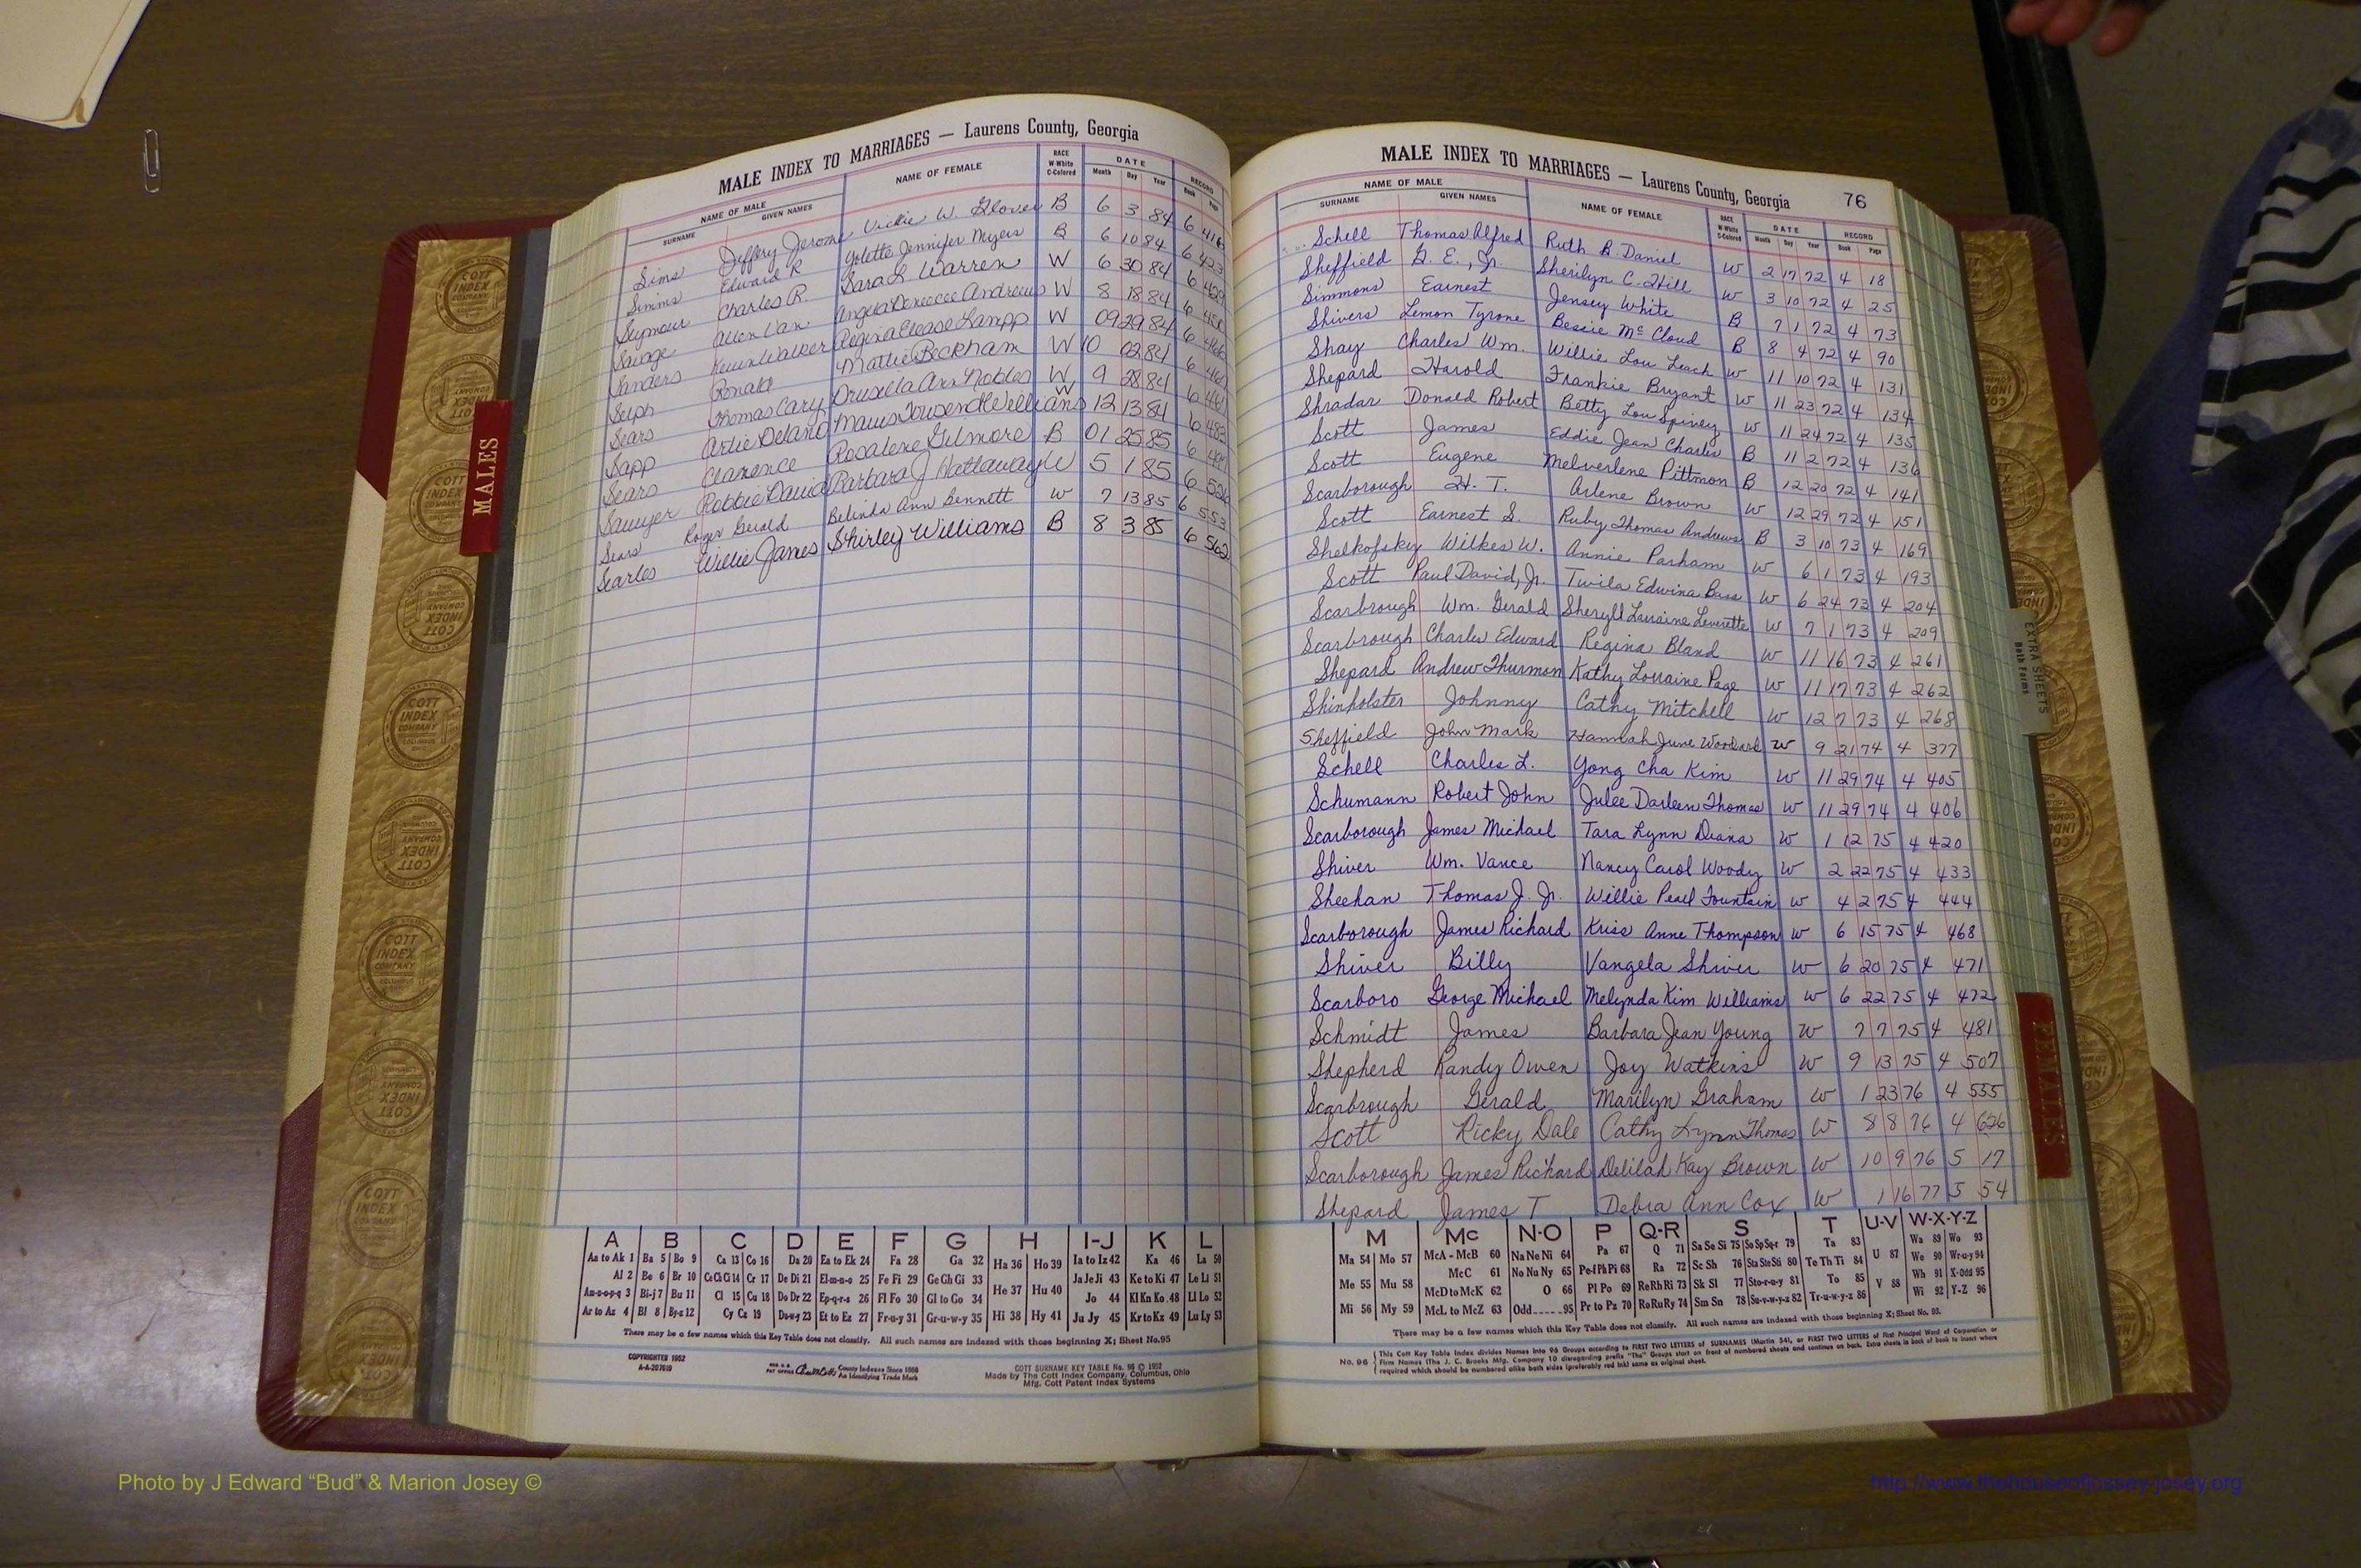 MALE INDEX TO MARRIAGES — Laurens County, Georgia
NAME OF MALE
SURNAME GIVEN NAMES
NAME OF FEMALE
RACE
W-White
C-Colored
DATE
Month Day Year
RECORD
Book Page
Sims Jeffery Jerome Vickie W. Glover B 6 3 84 6 416
Simms Edward R Yolette Jennifer Myers B 6 10 84 6 423
Seymour Charles R. Sara L Warren W 6 30 84 6 429
Savage Allen Van Angela Andrews W 8 18 84 6
Sanders Kevin Walker Regina Lampp W 09 29 84 6
Selph Ronald Mattie Beckham W 10 02 84 6
Sears Thomas Cary Drusilla Ann Nobles W 9 28 84 6
Sapp Artie Deland Mavis Towsend Williams W 12 13 84 6 483
Sears Clarence Rosalene Gilmore B 01 25 85 6
Sawyer Robbie David Barbara J Hattaway W 5 1 85 6
Sears Roger Gerald Belinda Ann Bennett W 7 13 85 6 553
Searles Willie James Shirley Williams B 8 3 85 6 562
MALES
A B C D E F G H I-J K L
Aa to Ak 1 Ba 5 Bo 9 Ca 13 Co 16 Da 20 Ea to Ek 24 Fa 28 Ga 32 Ha 36 Ho 39 Ia to Iz 42 Ka 46 La 50
Al 2 Be 6 Br 10 Ce Ch Ci 14 Cr 17 De Di 21 El-m-n-o 25 Fe Fi 29 Ge Gh Gi 33 He 37 Hu 40 Ja Je Ji 43 Ke to Ki 47 Le Li 51
Am-n-o-p-q 3 Bi-j 7 Bu 11 Cl 15 Cu 18 Do Dr 22 Ep-q-r-s 26 Fl Fo 30 Gl to Go 34 Jo 44 Kl Kn Ko 48 Ll Lo 52
Ar to Az 4 Bl 8 By-z 12 Cy Cz 19 Du-w-y 23 Et to Ez 27 Fr-u-y 31 Gr-u-w-y 35 Hi 38 Hy 41 Ju Jy 45 Kr to Kz 49 Lu Ly 53
There may be a few names which this Key Table does not classify. All such names are indexed with those beginning X; Sheet No.95
COPYRIGHTED 1952
A-A-207619
REG. U.S.
PAT OFFICE County Indexes Since 1888
An Identifying Trade Mark
COTT SURNAME KEY TABLE No. 96 © 1952
Made by The Cott Index Company, Columbus, Ohio
Mfg. Cott Patent Index Systems
MALE INDEX TO MARRIAGES — Laurens County, Georgia 76
NAME OF MALE
SURNAME GIVEN NAMES
NAME OF FEMALE
RACE
W-White
C-Colored
DATE
Month Day Year
RECORD
Book Page
Schell Thomas Alfred Ruth B. Daniel W 2 17 72 4 18
Sheffield G. E., Jr. Sherilyn C. Hill W 3 10 72 4 25
Simmons Earnest Jensey White B 7 1 72 4 73
Shivers Lemon Tyrone Bessie McCloud B 8 4 72 4 90
Shay Charles Wm. Willie Lou Leach W 11 10 72 4 131
Shepard Harold Frankie Bryant W 11 23 72 4 134
Shradar Donald Robert Betty Lou Spivey W 11 24 72 4 135
Scott James Eddie Jean Charles B 11 2 72 4 136
Scott Eugene Melverlene Pittmon B 12 20 72 4 141
Scarborough H. T. Arlene Brown W 12 29 72 4 151
Scott Earnest S. Ruby Thomas Andrews B 3 10 73 4 169
Shelkofsky Wilkes W. Annie Parham W 6 1 73 4 193
Scott Paul David, Jr. Twila Edwina Bass W 6 24 73 4 204
Scarbrough Wm. Gerald Sheryll Lorraine Leverette W 7 1 73 4 209
Scarbrough Charles Edward Regina Bland W 11 16 73 4 261
Shepard Andrew Thurmon Kathy Lorraine Page W 11 17 73 4 262
Shinholster Johnny Cathy Mitchell W 12 7 73 4 268
Sheffield John Mark Hannah June Woodard W 9 21 74 4 377
Schell Charles L. Yong Cha Kim W 11 29 74 4 405
Schumann Robert John Julee Darleen Thomas W 11 29 74 4 406
Scarborough James Michael Tara Lynn Deana W 1 12 75 4 420
Shiver Wm. Vance Nancy Carol Woody W 2 22 75 4 433
Sheehan Thomas J. Jr. Willie Pearl Fountain W 4 2 75 4 444
Scarborough James Richard Kriss Anne Thompson W 6 15 75 4 468
Shiver Billy Vangela Shiver W 6 20 75 4 471
Scarboro George Michael Melynda Kim Williams W 6 22 75 4 472
Schmidt James Barbara Jean Young W 7 7 75 4 481
Shepherd Randy Owen Joy Watkins W 9 13 75 4 507
Scarbrough Gerald Marilyn Graham W 1 23 76 4 555
Scott Ricky Dale Cathy Lynn Thomas W 8 8 76 4 626
Scarborough James Richard Delilah Kay Brown W 10 9 76 5 17
Shepard James T Debra Ann Cox W 1 16 77 5 54
EXTRA SHEETS
Both Forms
FEMALES
M Mc N-O P Q-R S T U-V W-X-Y-Z
Ma 54 Mo 57 McA - McB 60 Na Ne Ni 64 Pa 67 Q 71 Sa Se Si 75 So Sp Sq-r 79 Ta 83 U 87 Wa 89 Wo 93
McC 61 No Nu Ny 65 Pe-f Ph Pi 68 Ra 72 Sc Sh 76 Sta Ste Sti 80 Te Th Ti 84 We 90 Wr-u-y 94
Me 55 Mu 58 McD to McK 62 O 66 Pl Po 69 Re Rh Ri 73 Sk Sl 77 Sto-r-u-y 81 To 85 V 88 Wh 91 X-Odd 95
Mi 56 My 59 McL to McZ 63 Odd-----95 Pr to Pz 70 Ro Ru Ry 74 Sm Sn 78 Su-v-w-y-z 82 Tr-u-w-y-z 86 Wi 92 Y-Z 96
There may be a few names which this Key Table does not classify. All such names are indexed with those beginning X; Sheet No. 95.
No. 96 This Cott Key Table Index divides Names into 96 Groups according to FIRST TWO LETTERS of SURNAMES (Martin 54), or FIRST TWO LETTERS of First Principal Word of Corporation or
Firm Names (The J. C. Brooks Mfg. Company 10 disregarding prefix "The" Groups start on front of numbered sheets and continue on back. Extra sheets in back of book to insert where
required which should be numbered alike both sides (preferably red ink) same as original sheet.
COTT
INDEX
COMPANY
Photo by J Edward “Bud” & Marion Josey ©
http://www.thehouseofjossey-josey.org